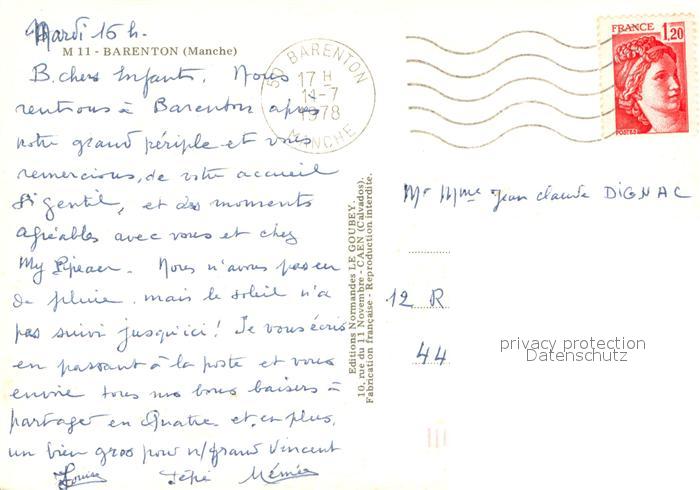 Mardi 15 h.
M 11 - BARENTON (Manche)
B. chers Enfants, Nous
rentrons à Barenton après
notre grand périple et vous
remercions, de votre accueil
si gentil, et des moments
agréables avec vous et chez
My. Nous n'avons pas eu
de pluie, mais le soleil n'a
pas suivi jusqu'ici ! Je vous écris
en passant à la poste et vous
envoie tous nos bons baisers à
partager en Quatre et, en plus,
un bien gros pour n/grand Vincent
Louise Pépé Mémée
50 BARENTON
17 H
14-7
1978
MANCHE
FRANCE 1,20
POSTES
Editions Normandes LE GOUBEY.
10, rue du 11 Novembre - CAEN (Calvados).
Fabrication française - Reproduction interdite.
Mr Mme Jean Claude DIGNAC
12 R
44
privacy protection
Datenschutz